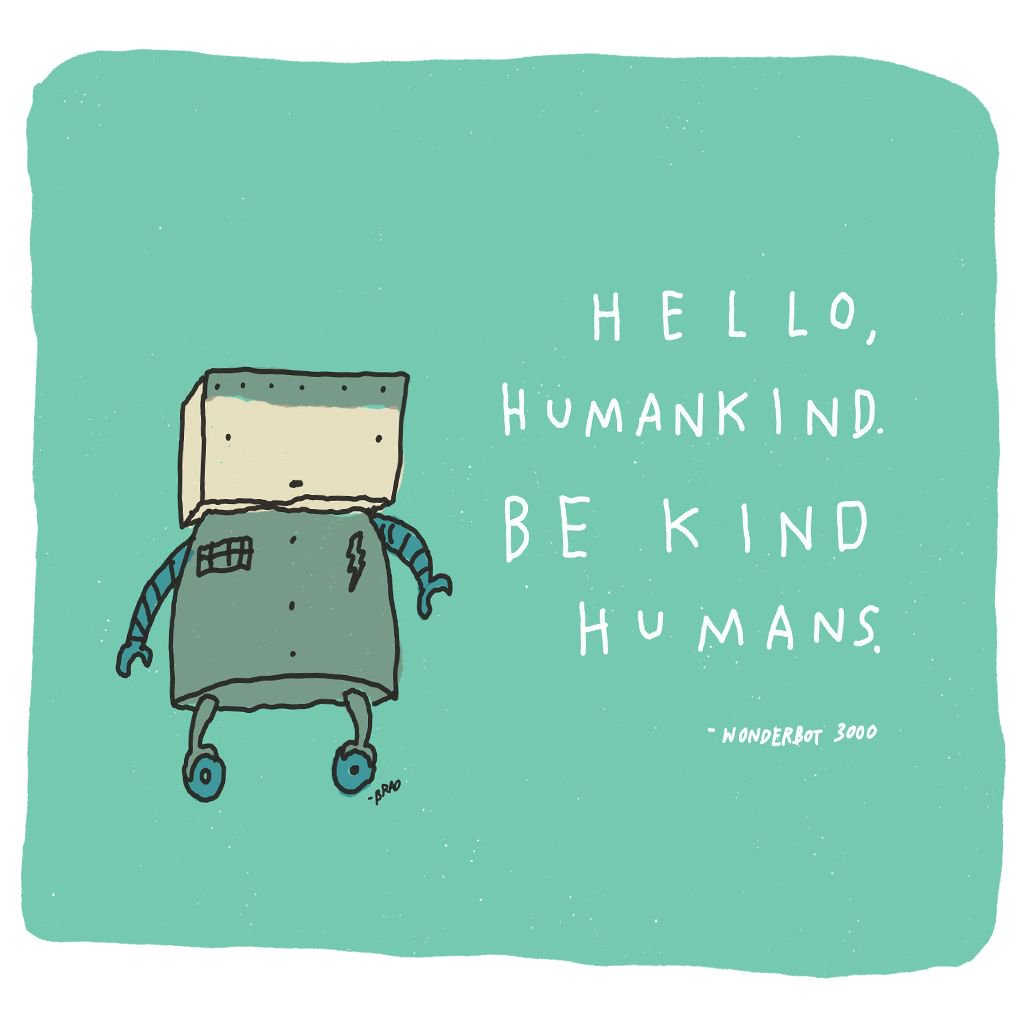 HELLO,
HUMANKIND.
BE KIND
HUMANS.
-WONDERBOT 3000
-BRAD